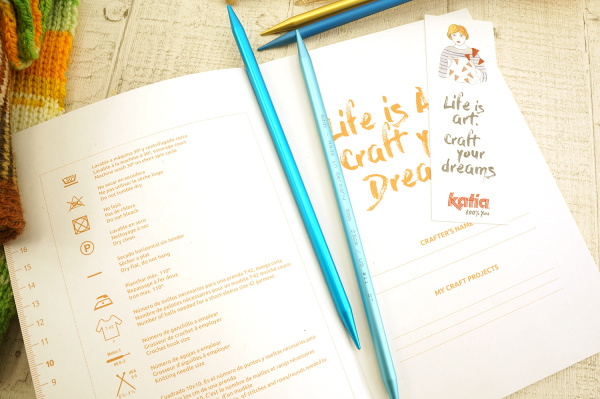 Lavable a máquina 30° y centrifugado corto
Lavable à la machine à 30°, essorage court
Machine wash 30° on short spin cycle
No secar en secadora
Ne pas utiliser le sèche linge
Do not tumble dry
No lejía
Pas de chlore
Do not bleach
P
Lavable en seco
Nettoyage à sec
Dry clean
Secado horizontal sin tender
Sécher à plat
Dry flat, do not hang
Planchar máx. 110°
Repassage à fer doux
Iron max. 110°
Número de ovillos necesarios para una prenda T.42, manga corta
Nombre de pelotes nécessaires pour un modèle T.42 manche courte
Number of balls needed for a short-sleeve size 42 garment
Número de ganchillo a emplear
Grosseur de crochet à employer
Crochet hook size
Número de agujas a emplear
Grosseur d'aiguilles à employer
Knitting needle size
Cuadrado 10x10. Es el número de puntos y medidas necesarios para
C'est le nombre de mailles et rangs nécessaires
of stitches and rows/rounds needed to
16
15
14
13
12
11
10
9
Life is A
Craft y
Drea
CRAFTER'S NAME
MY CRAFT PROJECTS
Life is
art.
Craft
your
dreams
katia
100% You